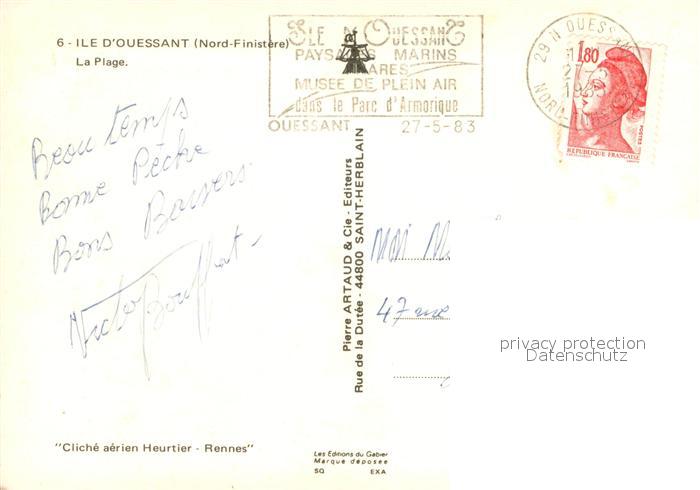 6 - ILE D'OUESSANT (Nord-Finistère)
La Plage.
ILE D'OUESSANT
PAYSAGES MARINS
PHARES
MUSEE DE PLEIN AIR
dans le Parc d'Armorique
OUESSANT 27-5-83
29 N OUESSANT
1,80
NORD
POSTES
REPUBLIQUE FRANÇAISE
Beau temps
Bonne Pêche
Bons Baisers
Pierre ARTAUD & Cie - Editeurs
Rue de la Dutée - 44800 SAINT-HERBLAIN
47 rue
privacy protection
Datenschutz
"Cliché aérien Heurtier - Rennes"
Les Editions du Gabier
Marque déposée
SQ EXA